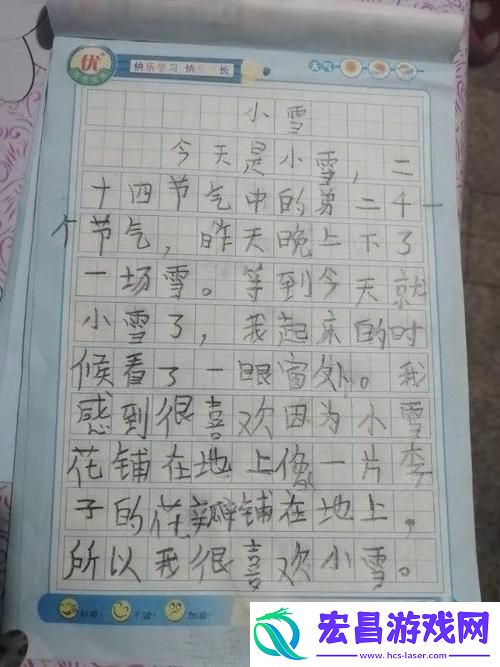 优
快乐学习 快乐成长
天气
小雪
今天是小雪,二
十四节气中的第二十一
个节气,昨天晚上下了
一场雪。等到今天就
小雪了,我起床的时
候看了一眼窗外。我
感到很喜欢因为小雪
花铺在地上像一片李
子的花瓣铺在地上,
所以我很喜欢小雪。
好棒! 不错! 加油!
宏昌游戏网
www.hcs-laser.com